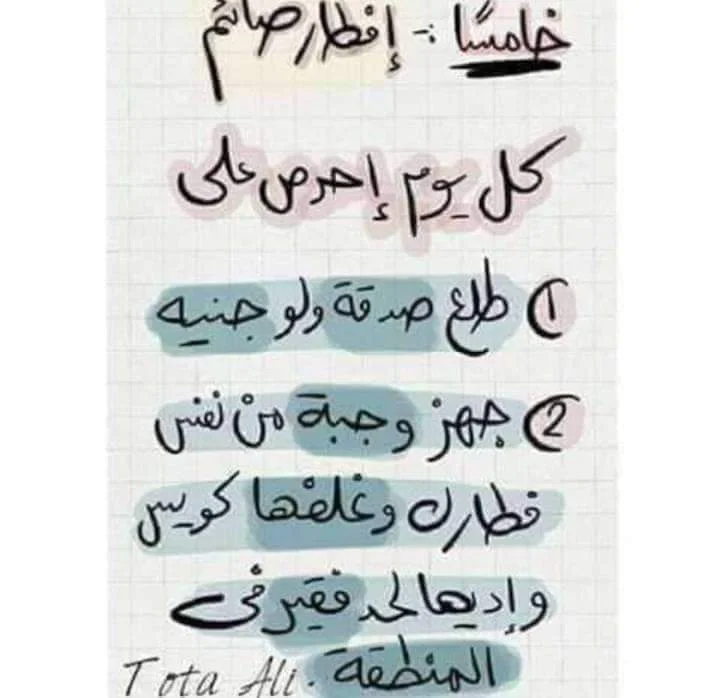 خامسًا :- إفطار صائم
كل يوم إحرص على
① طلع صدقة ولو جنيه
② جهز وجبة من نفس
فطارك وغلفها كويس
وإديها لحد فقير في
المنطقة . Tota Ali